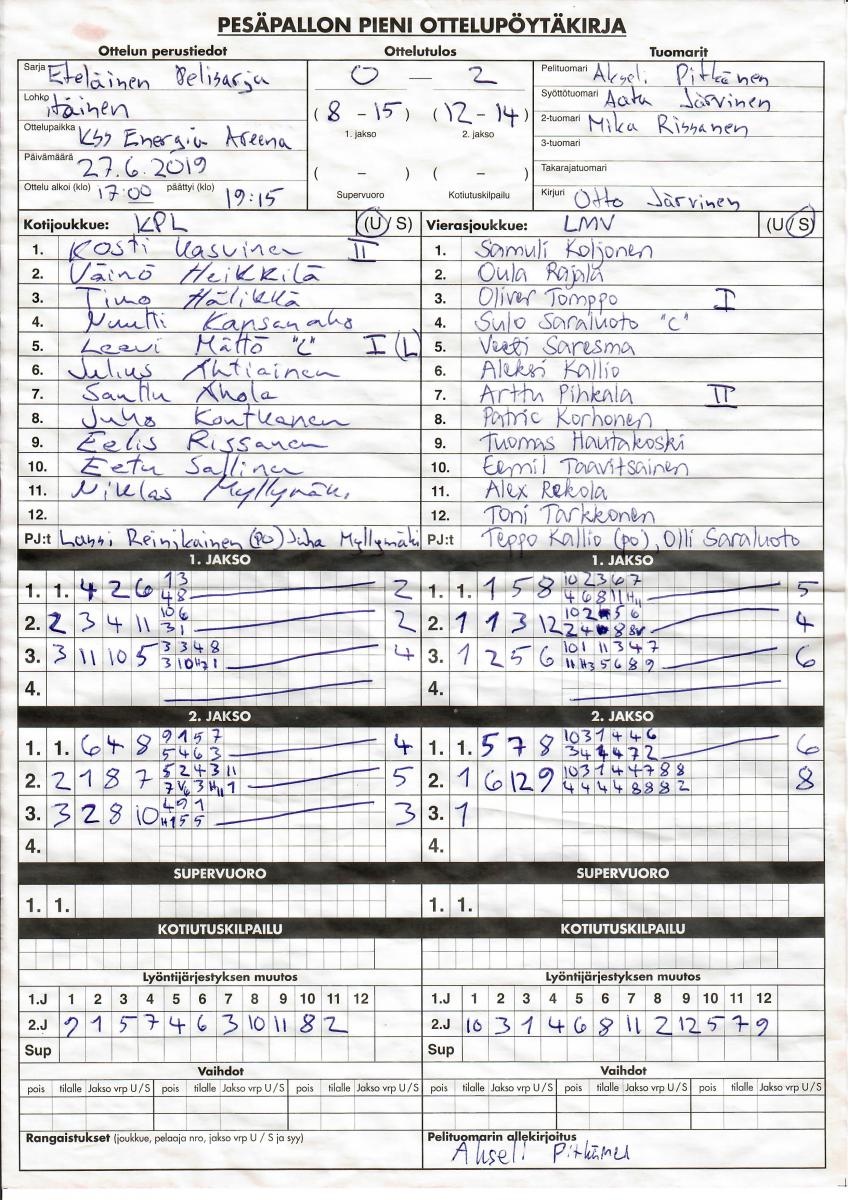 PESÄPALLON PIENI OTTELUPÖYTÄKIRJA
Ottelun perustiedot Ottelutulos Tuomarit
Sarja Eteläinen Pelisarja
Lohko itäinen
Ottelupaikka KSS Energia Areena
Päivämäärä 27.6.2019
Ottelu alkoi (klo) 17:00 päättyi (klo) 19:15
0 — 2
(8 - 15) (12 - 14)
1. jakso 2. jakso
( - ) ( - )
Supervuoro Kotiutuskilpailu
Pelituomari Akseli Pitkänen
Syöttötuomari Aatu Järvinen
2-tuomari Mika Rissanen
3-tuomari
Takarajatuomari
Kirjuri Otto Järvinen
Kotijoukkue: KPL (U / S)
1. Kosti Kasvinen II
2. Väinö Heikkilä
3. Timo Hälikkä
4. Nuutti Kansanaho
5. Leevi Mättö "C" I (L
6. Julius Ahtiainen
7. Santtu Ahola
8. Juho Kontkanen
9. Eelis Rissanen
10. Eetu Sallinen
11. Niklas Myllymäki
12.
PJ:t Lassi Reinikainen (po) Juha Myllymäki
Vierasjoukkue: LMV (U / S)
1. Samuli Koljonen
2. Oula Rajala
3. Oliver Tomppo I
4. Sulo Saraluoto "C"
5. Veeti Saresma
6. Aleksi Kallio
7. Arttu Pihkala II
8. Patric Korhonen
9. Tuomas Hautakoski
10. Eemil Taavitsainen
11. Alex Rekola
12. Toni Tarkkonen
PJ:t Teppo Kallio (po), Olli Saraluoto
1. JAKSO 1. JAKSO
1. 1. 4 2 6 1 3 4 8 2
2. 2 3 4 11 10 6 3 1 2
3. 3 11 10 5 3 3 4 8 3 10 H7 1 4
4.
1. 1. 1 5 8 10 2 3 6 7 4 6 8 11 H11 5
2. 1 1 3 12 10 2 5 6 2 4 8 8v 4
3. 1 2 5 6 10 1 11 3 4 7 11 H3 5 6 8 9 6
4.
2. JAKSO 2. JAKSO
1. 1. 6 4 8 9 1 5 7 5 4 6 3 4
2. 2 1 8 7 5 2 4 3 11 7 V6 3 H11 1 5
3. 3 2 8 10 4 9 1 H1 5 5 3
4.
1. 1. 5 7 8 10 3 1 4 4 6 3 4 4 4 7 2 6
2. 1 6 12 9 10 3 1 4 4 7 8 8 4 4 4 4 8 8 8 2 8
3. 1
4.
SUPERVUORO SUPERVUORO
1. 1. 1. 1.
KOTIUTUSKILPAILU KOTIUTUSKILPAILU
Lyöntijärjestyksen muutos Lyöntijärjestyksen muutos
1.J 1 2 3 4 5 6 7 8 9 10 11 12 1.J 1 2 3 4 5 6 7 8 9 10 11 12
2.J 9 1 5 7 4 6 3 10 11 8 2 2.J 10 3 1 4 6 8 11 2 12 5 7 9
Sup Sup
Vaihdot Vaihdot
pois tilalle Jakso vrp U / S pois tilalle Jakso vrp U / S pois tilalle pois tilalle Jakso vrp U / S pois tilalle Jakso vrp U / S pois tilalle
Rangaistukset (joukkue, pelaaja nro, jakso vrp U / S ja syy) Pelituomarin allekirjoitus
Akseli Pitkänen